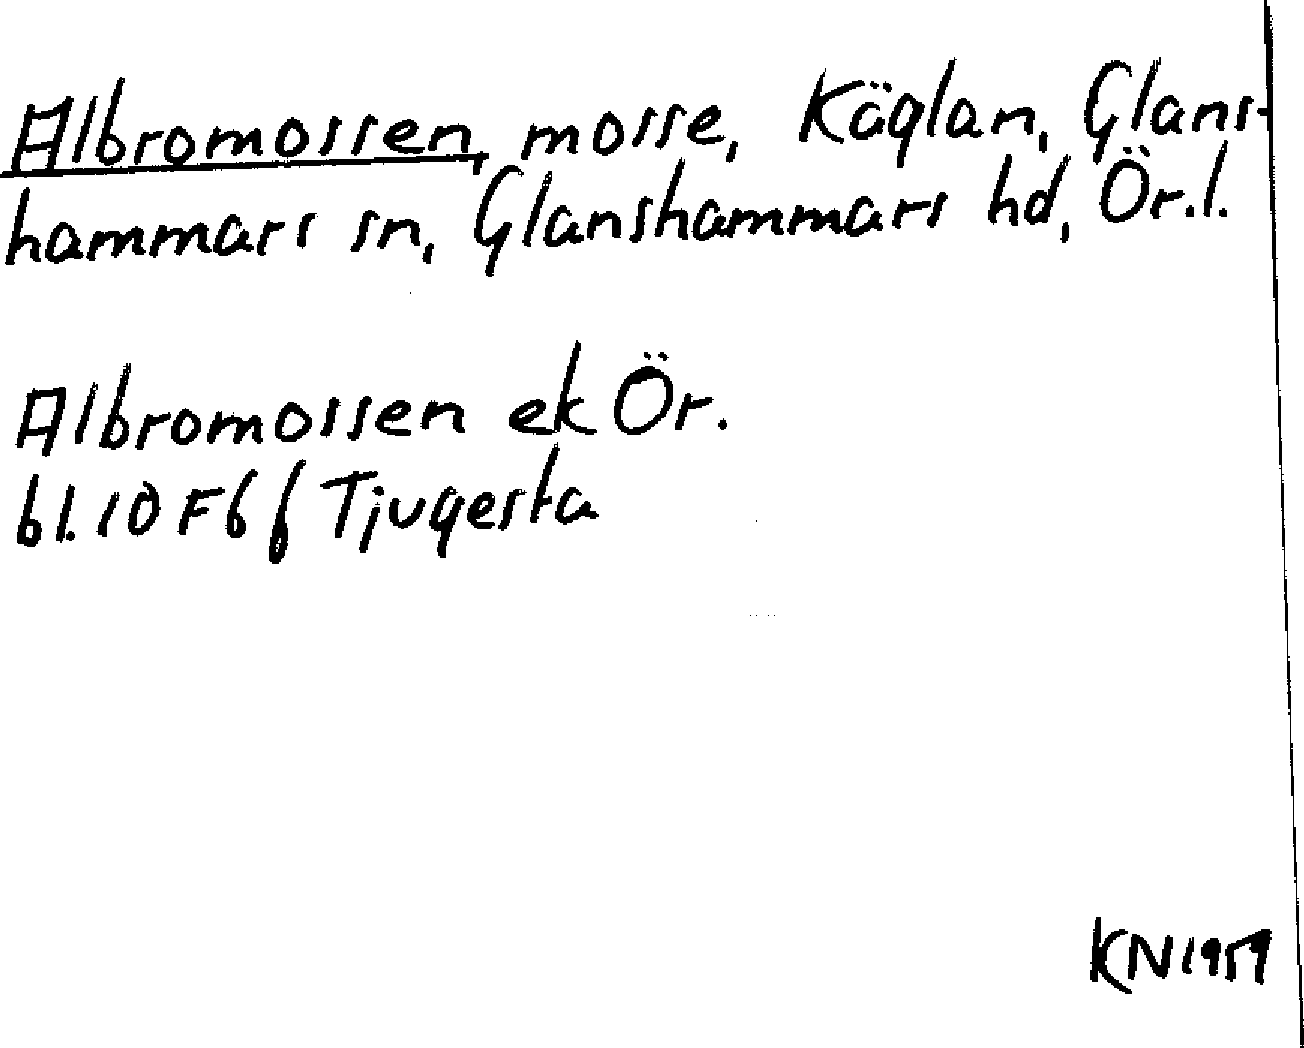 Albromossen, mosse, Käglan, Glans-
hammars sn, Glanshammars hd, Ör.l.
Albromossen ek Ör.
bl. 10 F6 f Tjugesta
KN 1959